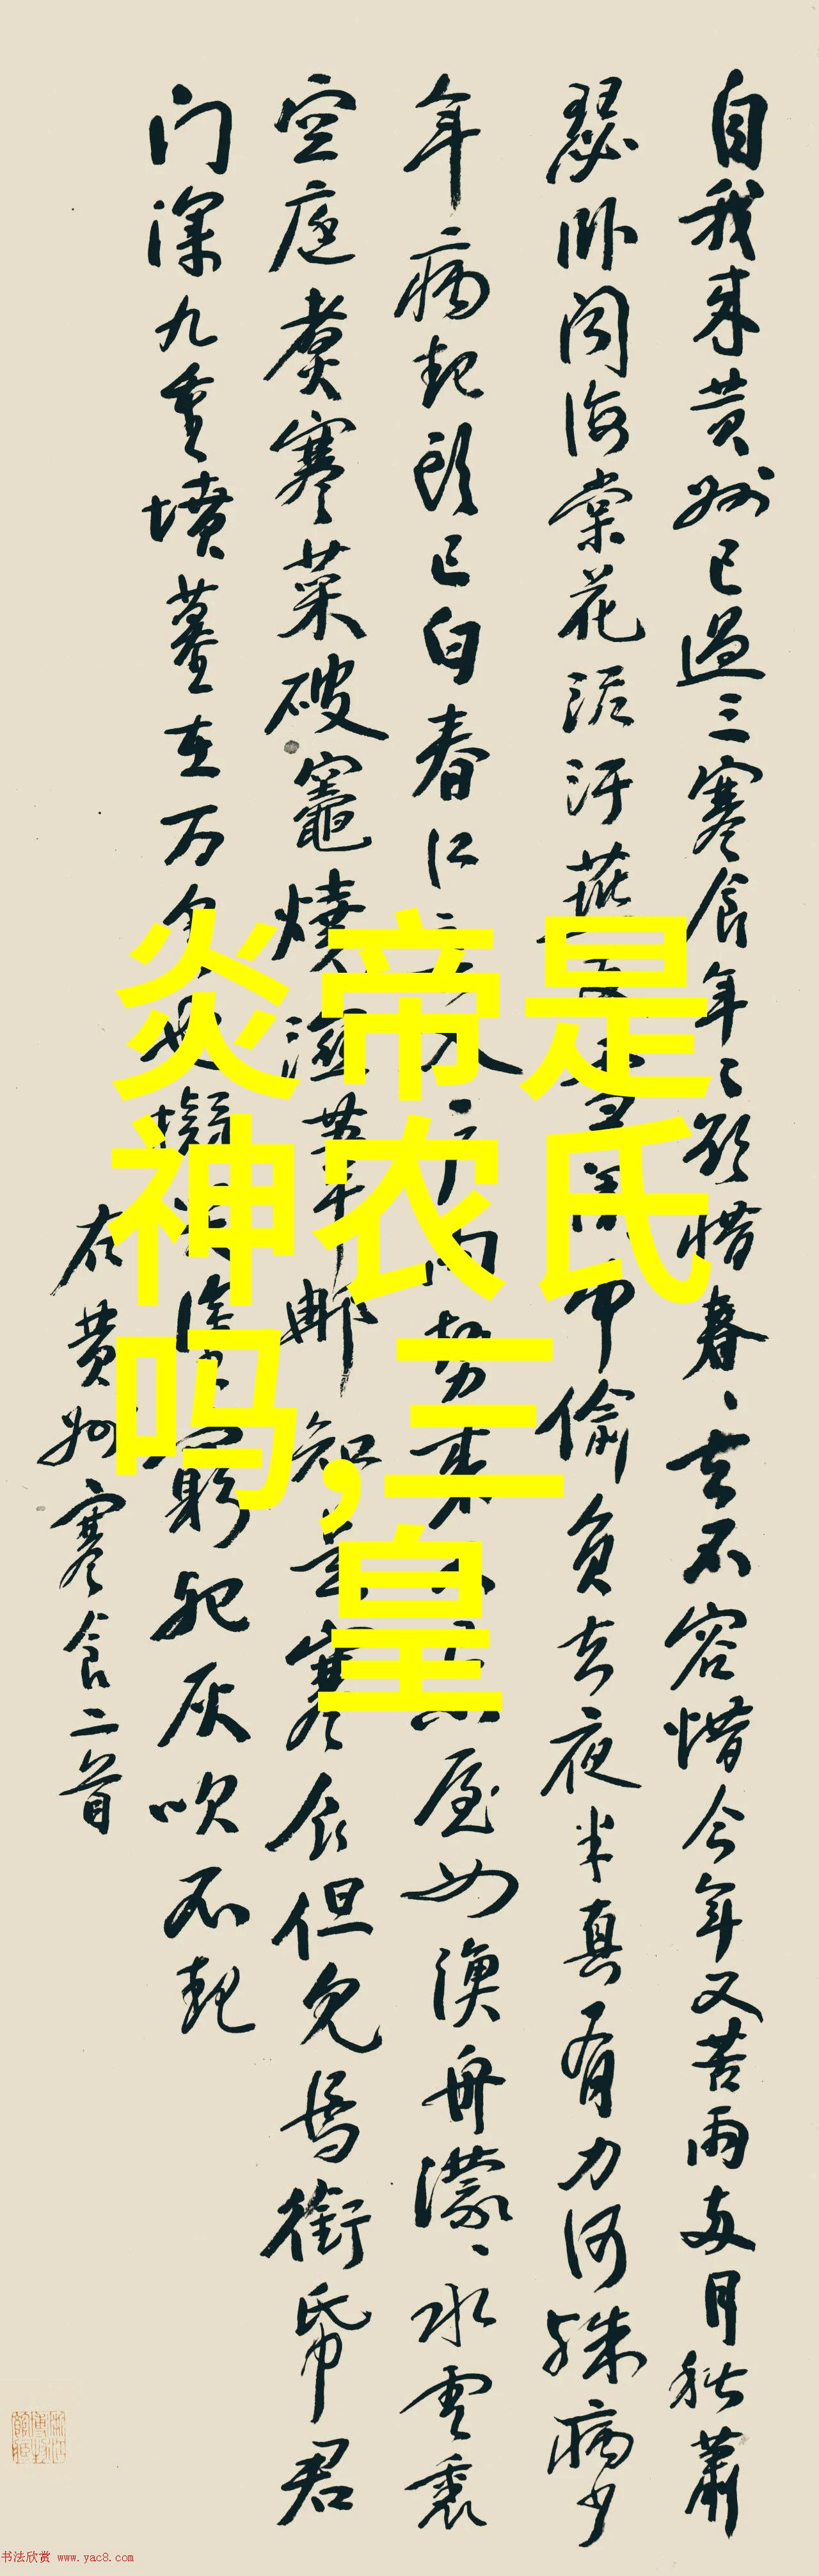 自我来黄州已過三寒食年々欲惜春、去不容惜今年又苦雨两月秋蕭
瑟卧闻海棠花泥汙燕支雪闇中偷負去夜半真有力何殊病少
年病起頭已白春江欲入户雨势来不已小屋如漁舟濛、水雲裏
空庖煮寒菜破竈燒濕苇那知是寒食但見烏銜帋君
门深九重墳墓在万里也擬哭途窮死灰吹不起
右黄州寒食二首
炎帝是
神农氏
吗,三
皇
书法欣赏 www.yac8.com